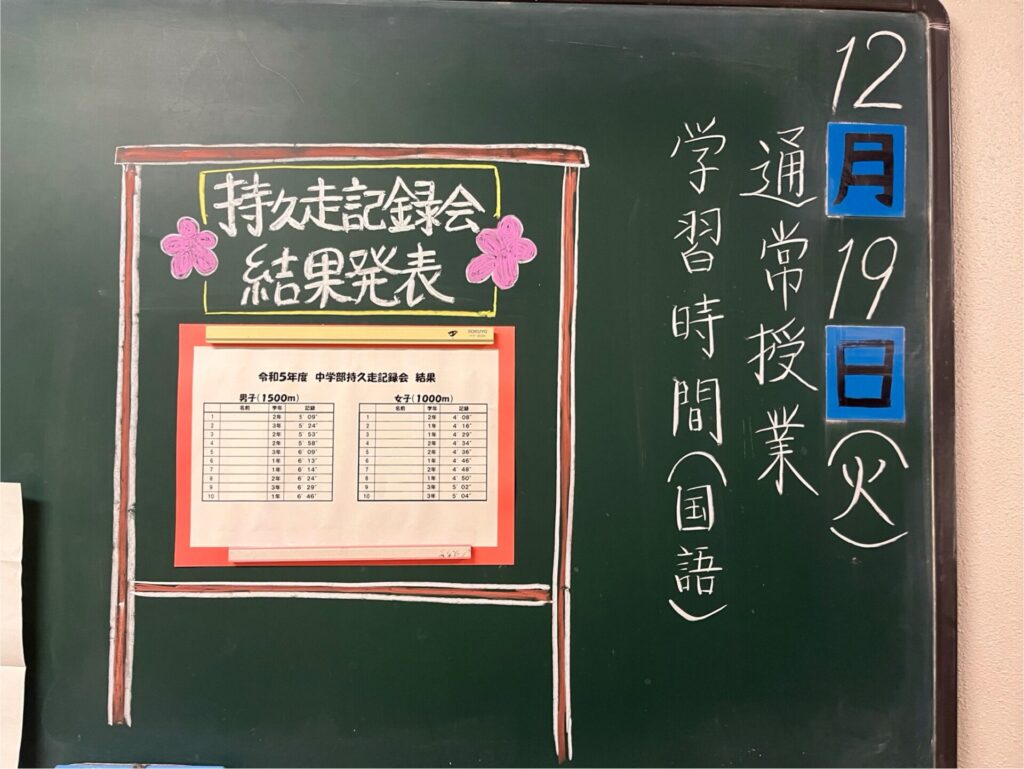 12月19日(火)
通常授業
学習時間(国語)
持久走記録会
結果発表
KOKUYO
令和5年度 中学部持久走記録会 結果
男子(1500m)
名前 学年 記録
1 2年 5'09"
2 3年 5'24"
3 2年 5'53"
4 2年 5'58"
5 3年 6'09"
6 1年 6'13"
7 1年 6'14"
8 2年 6'24"
9 3年 6'29"
10 1年 6'46"
女子(1000m)
名前 学年 記録
1 2年 4'08"
2 1年 4'16"
3 1年 4'29"
4 2年 4'34"
5 2年 4'36"
6 1年 4'46"
7 2年 4'48"
8 1年 4'50"
9 3年 5'02"
10 3年 5'04"